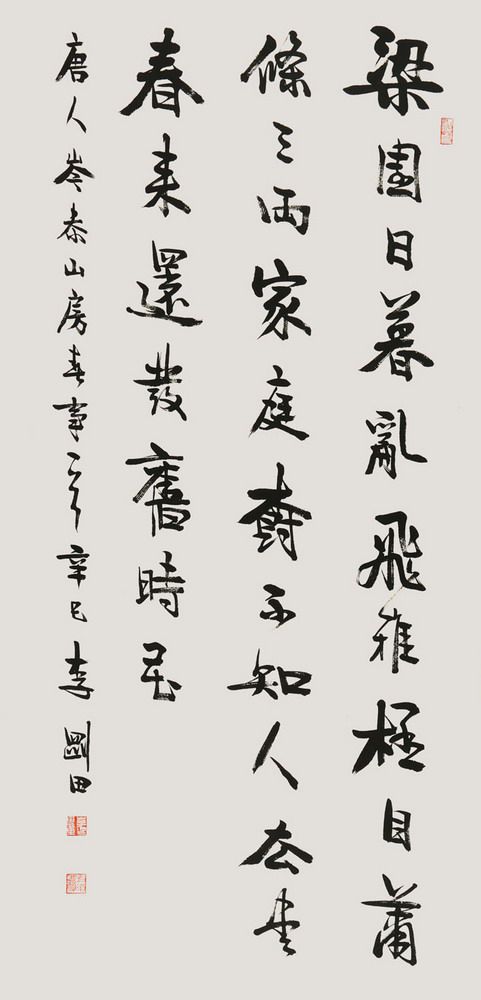 梁園日暮亂飛雅極目蕭
條三兩家庭樹不知人去盡
春來還發舊時花
唐人岑參山房春事一首辛巳李剛田